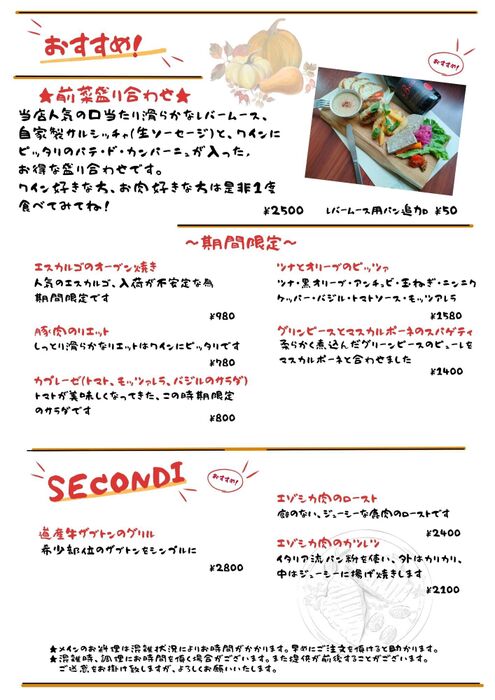 おすすめ!
★前菜盛り合わせ★
当店人気の口当たり滑らかなレバームース、
自家製サルシッチャ(生ソーセージ)と、ワインに
ピッタリのパテ・ド・カンパーニュが入った、
お得な盛り合わせです。
ワイン好きな方、お肉好きな方は是非1度
食べてみてね!
¥2500
おすすめ!
レバームース用パン追加 ¥50
〜期間限定〜
エスカルゴのオーブン焼き
人気のエスカルゴ、入荷が不安定な為
期間限定です
¥980
豚肉のリエット
しっとり滑らかなリエットはワインにピッタリです
¥780
カプレーゼ(トマト、モッツァレラ、バジルのサラダ)
トマトが美味しくなってきた、この時期限定
のサラダです
¥800
ツナとオリーブのピッツァ
ツナ・黒オリーブ・アンチョビ・玉ねぎ・ニンニク
ケッパー・バジル・トマトソース・モッツアレラ
¥1580
グリンピースとマスカルポーネのスパゲティ
柔らかく煮込んだグリーンピースのピューレを
マスカルポーネと合わせました
¥1400
SECONDI
おすすめ!
道産牛グブトンのグリル
希少部位のグブトンをシンプルに
¥2800
エゾシカ肉のロースト
癖のない、ジューシーな鹿肉のローストです
¥2400
エゾシカ肉のカツレツ
イタリア流パン粉を使い、外はカリカリ、
中はジューシーに揚げ焼きします
¥2100
★メインのお料理は混雑状況によりお時間がかかります。早めにご注文を頂けると助かります。
★混雑時、調理にお時間を頂く場合がございます。また提供が前後することがございます。
ご迷惑をお掛け致しますが、よろしくお願いいたします。